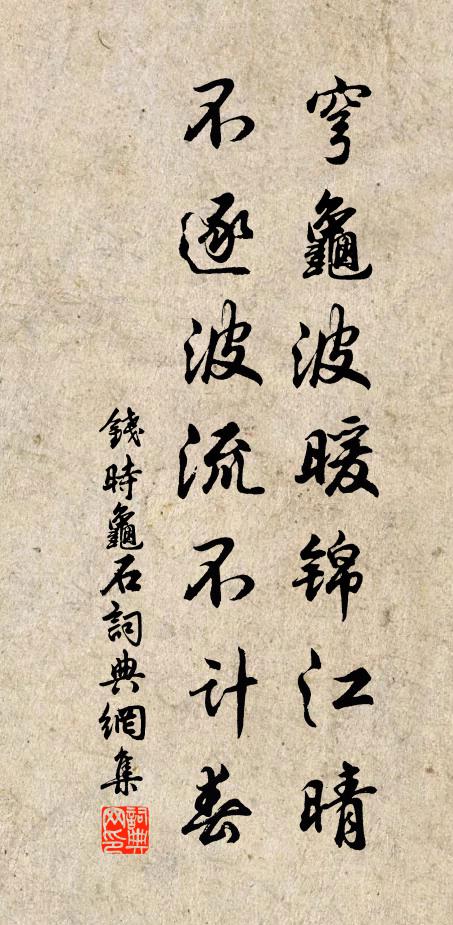 穹龜波暖錦江晴
不逐波流不计春
錢時龜石詞典網集
詞典网印